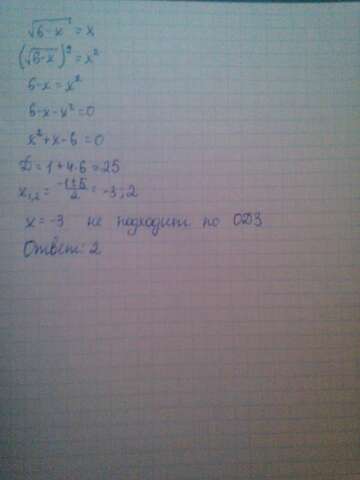 √6-x = x
(√6-x)² = x²
6-x = x²
6-x-x² = 0
x²+x-6 = 0
D = 1+4·6 = 25
x₁,₂ = (-1±5)/2 = -3; 2
x = -3 не подходит по ОДЗ
Ответ: 2